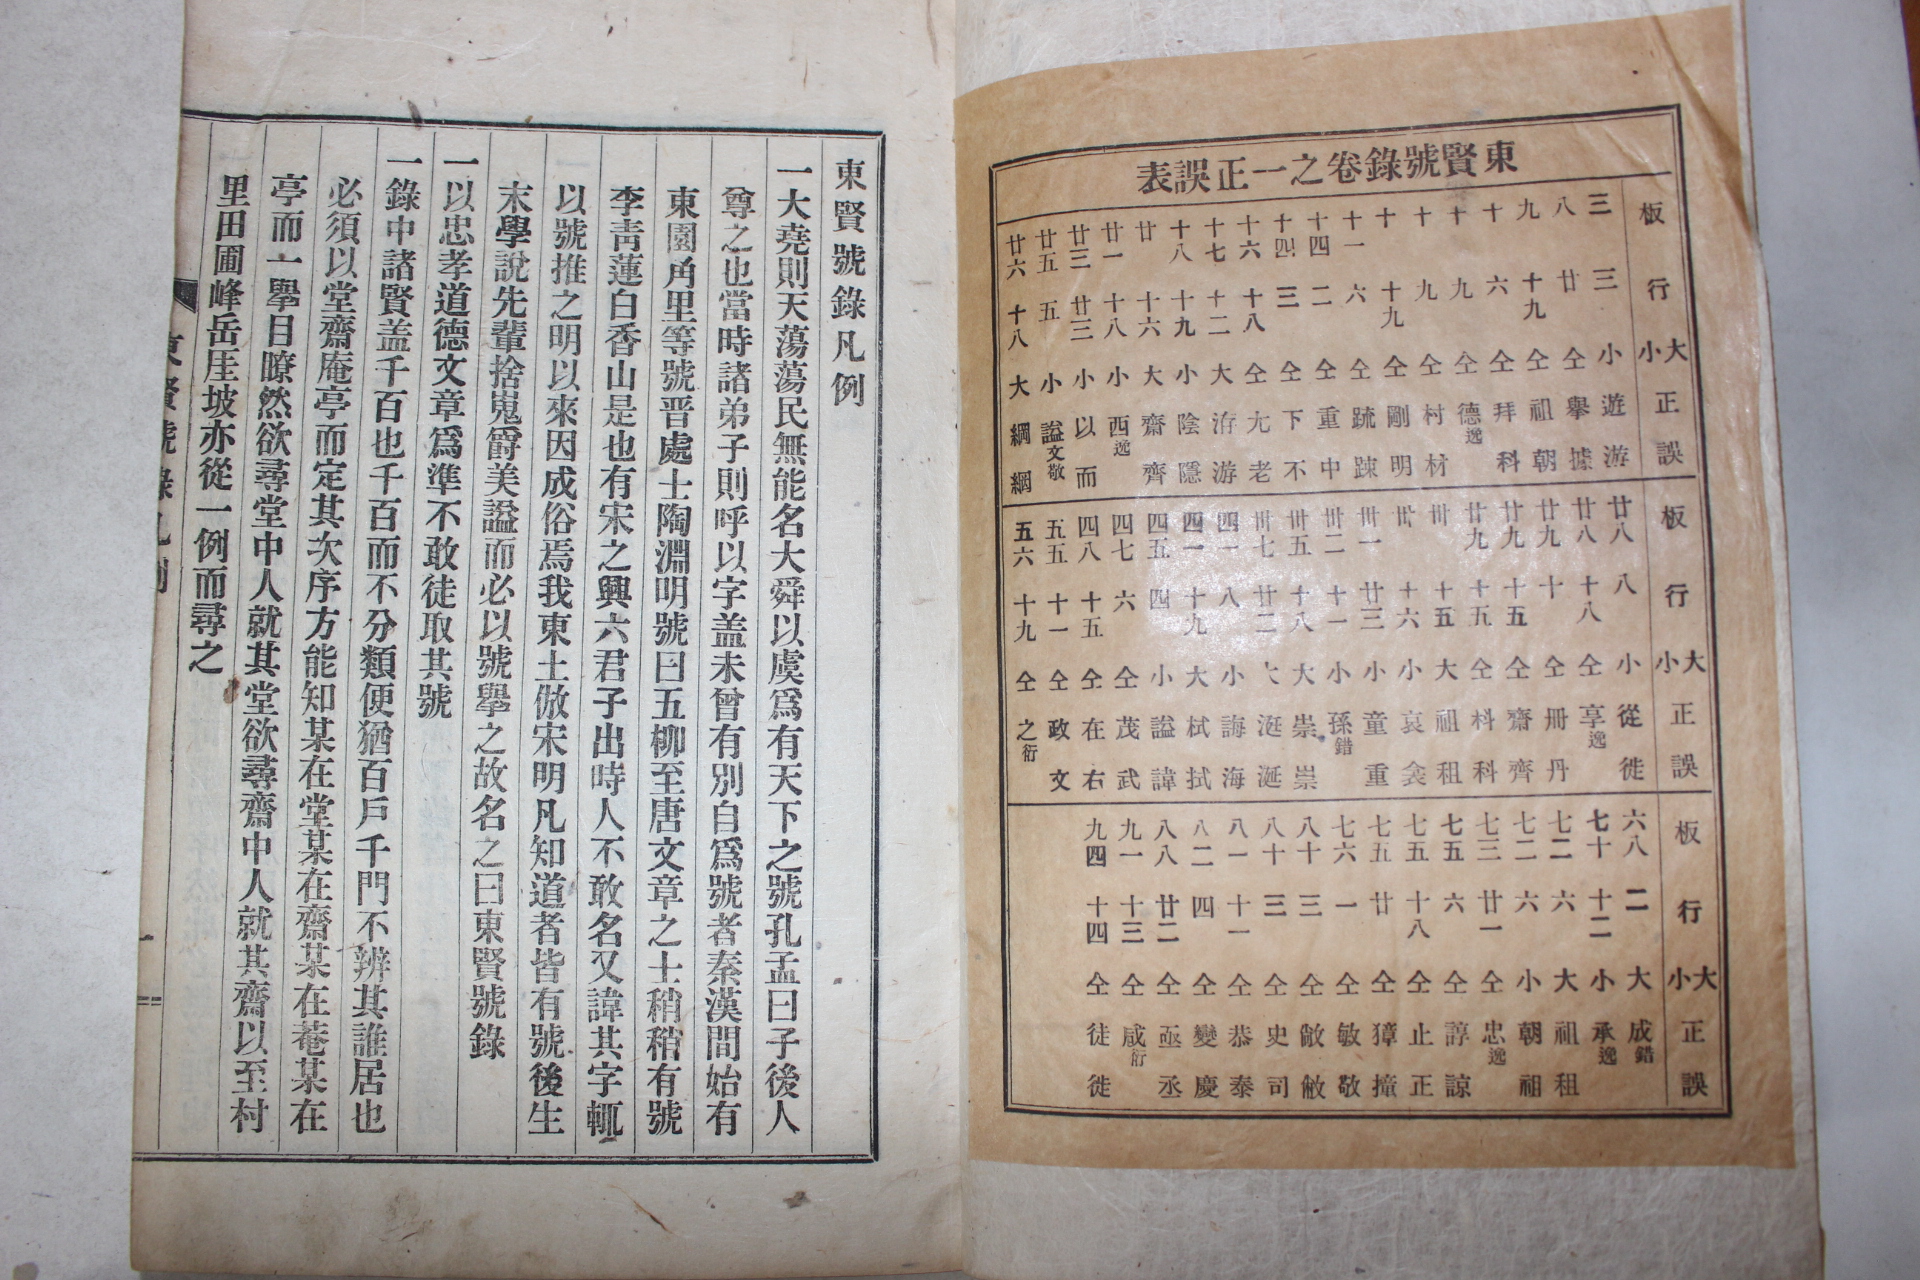 東賢號錄卷之一正誤表
板 行 大小 正 誤
三 三 小 遊 游
八 廿 仝 擧 據
九 十九 仝 祖 朝
十 六 仝 拜 科
十 九 仝 德逸
十 九 仝 村 材
十 十九 仝 剛 明
十一 六 仝 䟽 踈
十四 二 仝 重 中
十四 三 仝 下 不
十六 十八 仝 尢 老
十七 十二 大 洊 游
十八 十九 小 陰 隱
廿 十六 大 齋 齊
廿一 十八 小 西逸
廿三 廿三 小 以 而
廿五 五 小 謚文敬
廿六 十八 大 綱 網
板 行 大小 正 誤
廿八 八 小 從 徙
廿八 十八 仝 享逸
廿九 十 仝 冊 丹
廿九 十五 仝 齋 齊
廿九 十五 仝 科
卅 十五 大 祖 租
卅 十六 小 哀 衾
卅一 廿三 小 童 重
卅二 十一 小 孫錯
卅五 十八 大 崇 祟
卅七 廿二 大 涎
四一 八 小 誨 海
四一 十九 大 栻 拭
四五 四 小 謚 諱
四七 六 仝 茂 武
四八 十五 仝 在 右
五五 十一 仝 政 文
五六 十九 仝 之衍
板 行 大小 正 誤
六八 二 大 成錯
七十 十二 小 承逸
七二 六 大 祖 租
七二 六 小 朝 祖
七三 廿一 仝 忠逸
七五 六 仝 諄 諒
七五 十八 仝 止 正
七五 廿 仝 獐 撞
七六 一 仝 敏 敬
八十 三 仝 敞 敝
八十 三 仝 史 司
八一 十一 仝 恭 泰
八二 四 仝 變 慶
八八 廿二 仝 亟 丞
九一 十三 仝 咸衍
九四 十四 仝 徒 徙
東賢號錄凡例
一大堯則天蕩蕩民無能名大舜以虞爲有天下之號孔孟曰子後人
尊之也當時諸弟子則呼以字盖未曾有別自爲號者秦漢間始有
東園角里等號晋處士陶淵明號曰五柳至唐文章之士稍稍有號
李靑蓮白香山是也有宋之興六君子出時人不敢名又諱其字輒
以號推之明以來因成俗焉我東土倣宋明凡知道者皆有號後生
末學說先輩捨嵬爵美謚而必以號擧之故名之曰東賢號錄
一以忠孝道德文章爲準不敢徒取其號
一錄中諸賢盖千百也千百而不分類便猶百戶千門不辨其誰居也
必須以堂齋庵亭而定其次序方能知某在堂某在齋某在菴某在
亭而一擧目瞭然欲尋堂中人就其堂欲尋齋中人就其齋以至村
里田圃峰岳厓坡亦從一例而尋之
東賢號錄凡例
一